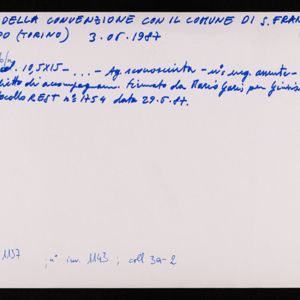 DELLA CONVENZIONE CON IL COMUNE DI S. FRA
DO (TORINO) 3.05.1987
col. 10,5X15 - ... - Ag. sconosciuta - n° neg. assente -
firmato da Mario Garis per
REST n° 1754 data 29.5.87.
1137 ; n° inv. 1143 ; coll 3a-2